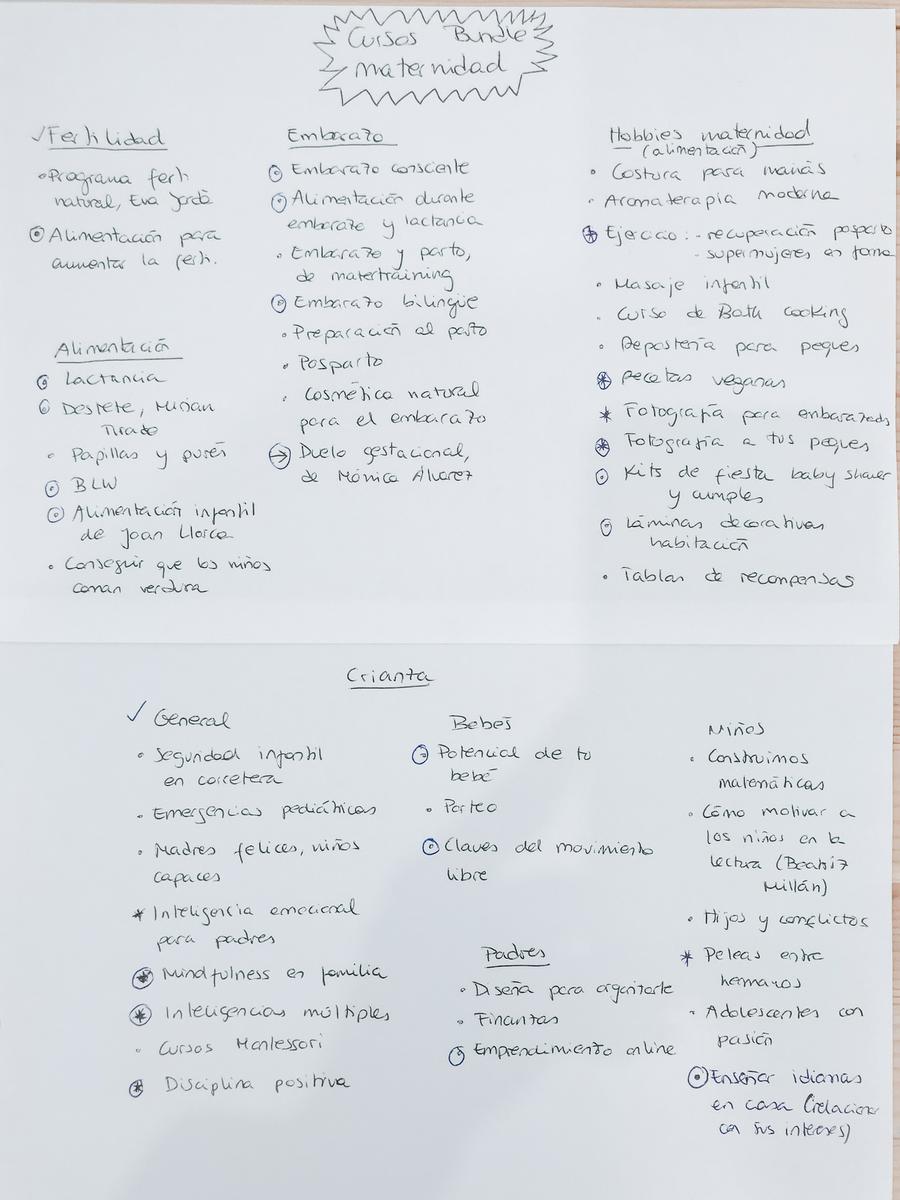 Cursos Bundle
maternidad
✓Fertilidad
• Programa ferti
natural, Eva Jordà
• Alimentación para
aumentar la ferti.
Alimentación
• Lactancia
• Destete, Mirian
Tirado
• Papillas y purés
• BLW
• Alimentación infantil
de Joan Llorca
• Conseguir que los niños
coman verdura
Embarazo
• Embarazo consciente
• Alimentación durante
embarazo y lactancia
• Embarazo y parto,
de matertraining
• Embarazo bilingüe
• Preparación al parto
• Posparto
• Cosmética natural
para el embarazo
→ Duelo gestacional,
de Mónica Álvarez
Hobbies maternidad
(alimentación)
• Costura para mamás
• Aromaterapia moderna
* Ejercicio: - recuperación posparto
- supermujeres en forma
• Masaje infantil
• Curso de Bath cooking
• Repostería para peques
* Recetas veganas
* Fotografía para embarazads
* Fotografía a tus peques
• Kits de fiesta baby shower
y cumples
• Láminas decorativas
habitación
• Tablas de recompensas
Crianza
✓ General
• Seguridad infantil
en carretera
• Emergencias pediátricas
• Madres felices, niños
capaces
* Inteligencia emocional
para padres
* Mindfulness en familia
* Inteligencias múltiples
• Cursos Montessori
* Disciplina positiva
Bebés
• Potencial de tu
bebé
• Porteo
• Claves del movimiento
libre
Padres
• Diseña para organizarte
• Finanzas
• Emprendimiento online
Niños
• Construimos
matemáticas
• Cómo motivar a
los niños en la
lectura (Beatriz
Millán)
• Hijos y conflictos
* Peleas entre
hermanos
• Adolescentes con
pasión
• Enseñar idiomas
en casa (relacionar
con sus intereses)